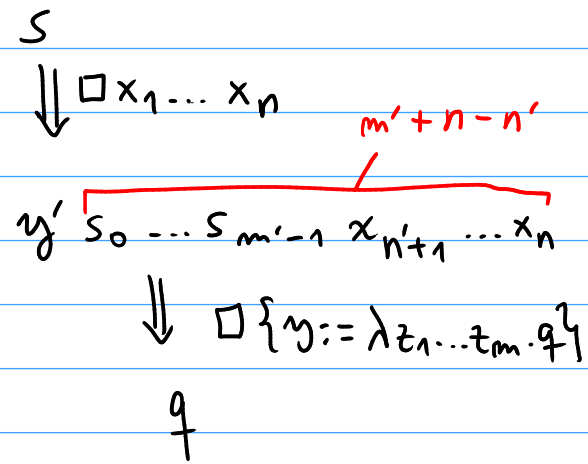 S
⇓ □ x₁ … xₙ
m' + n − n'
y' s₀ … s_{m'−1} x_{n'+1} … xₙ
⇓ □ {y := λz₁…z_m . q}
q